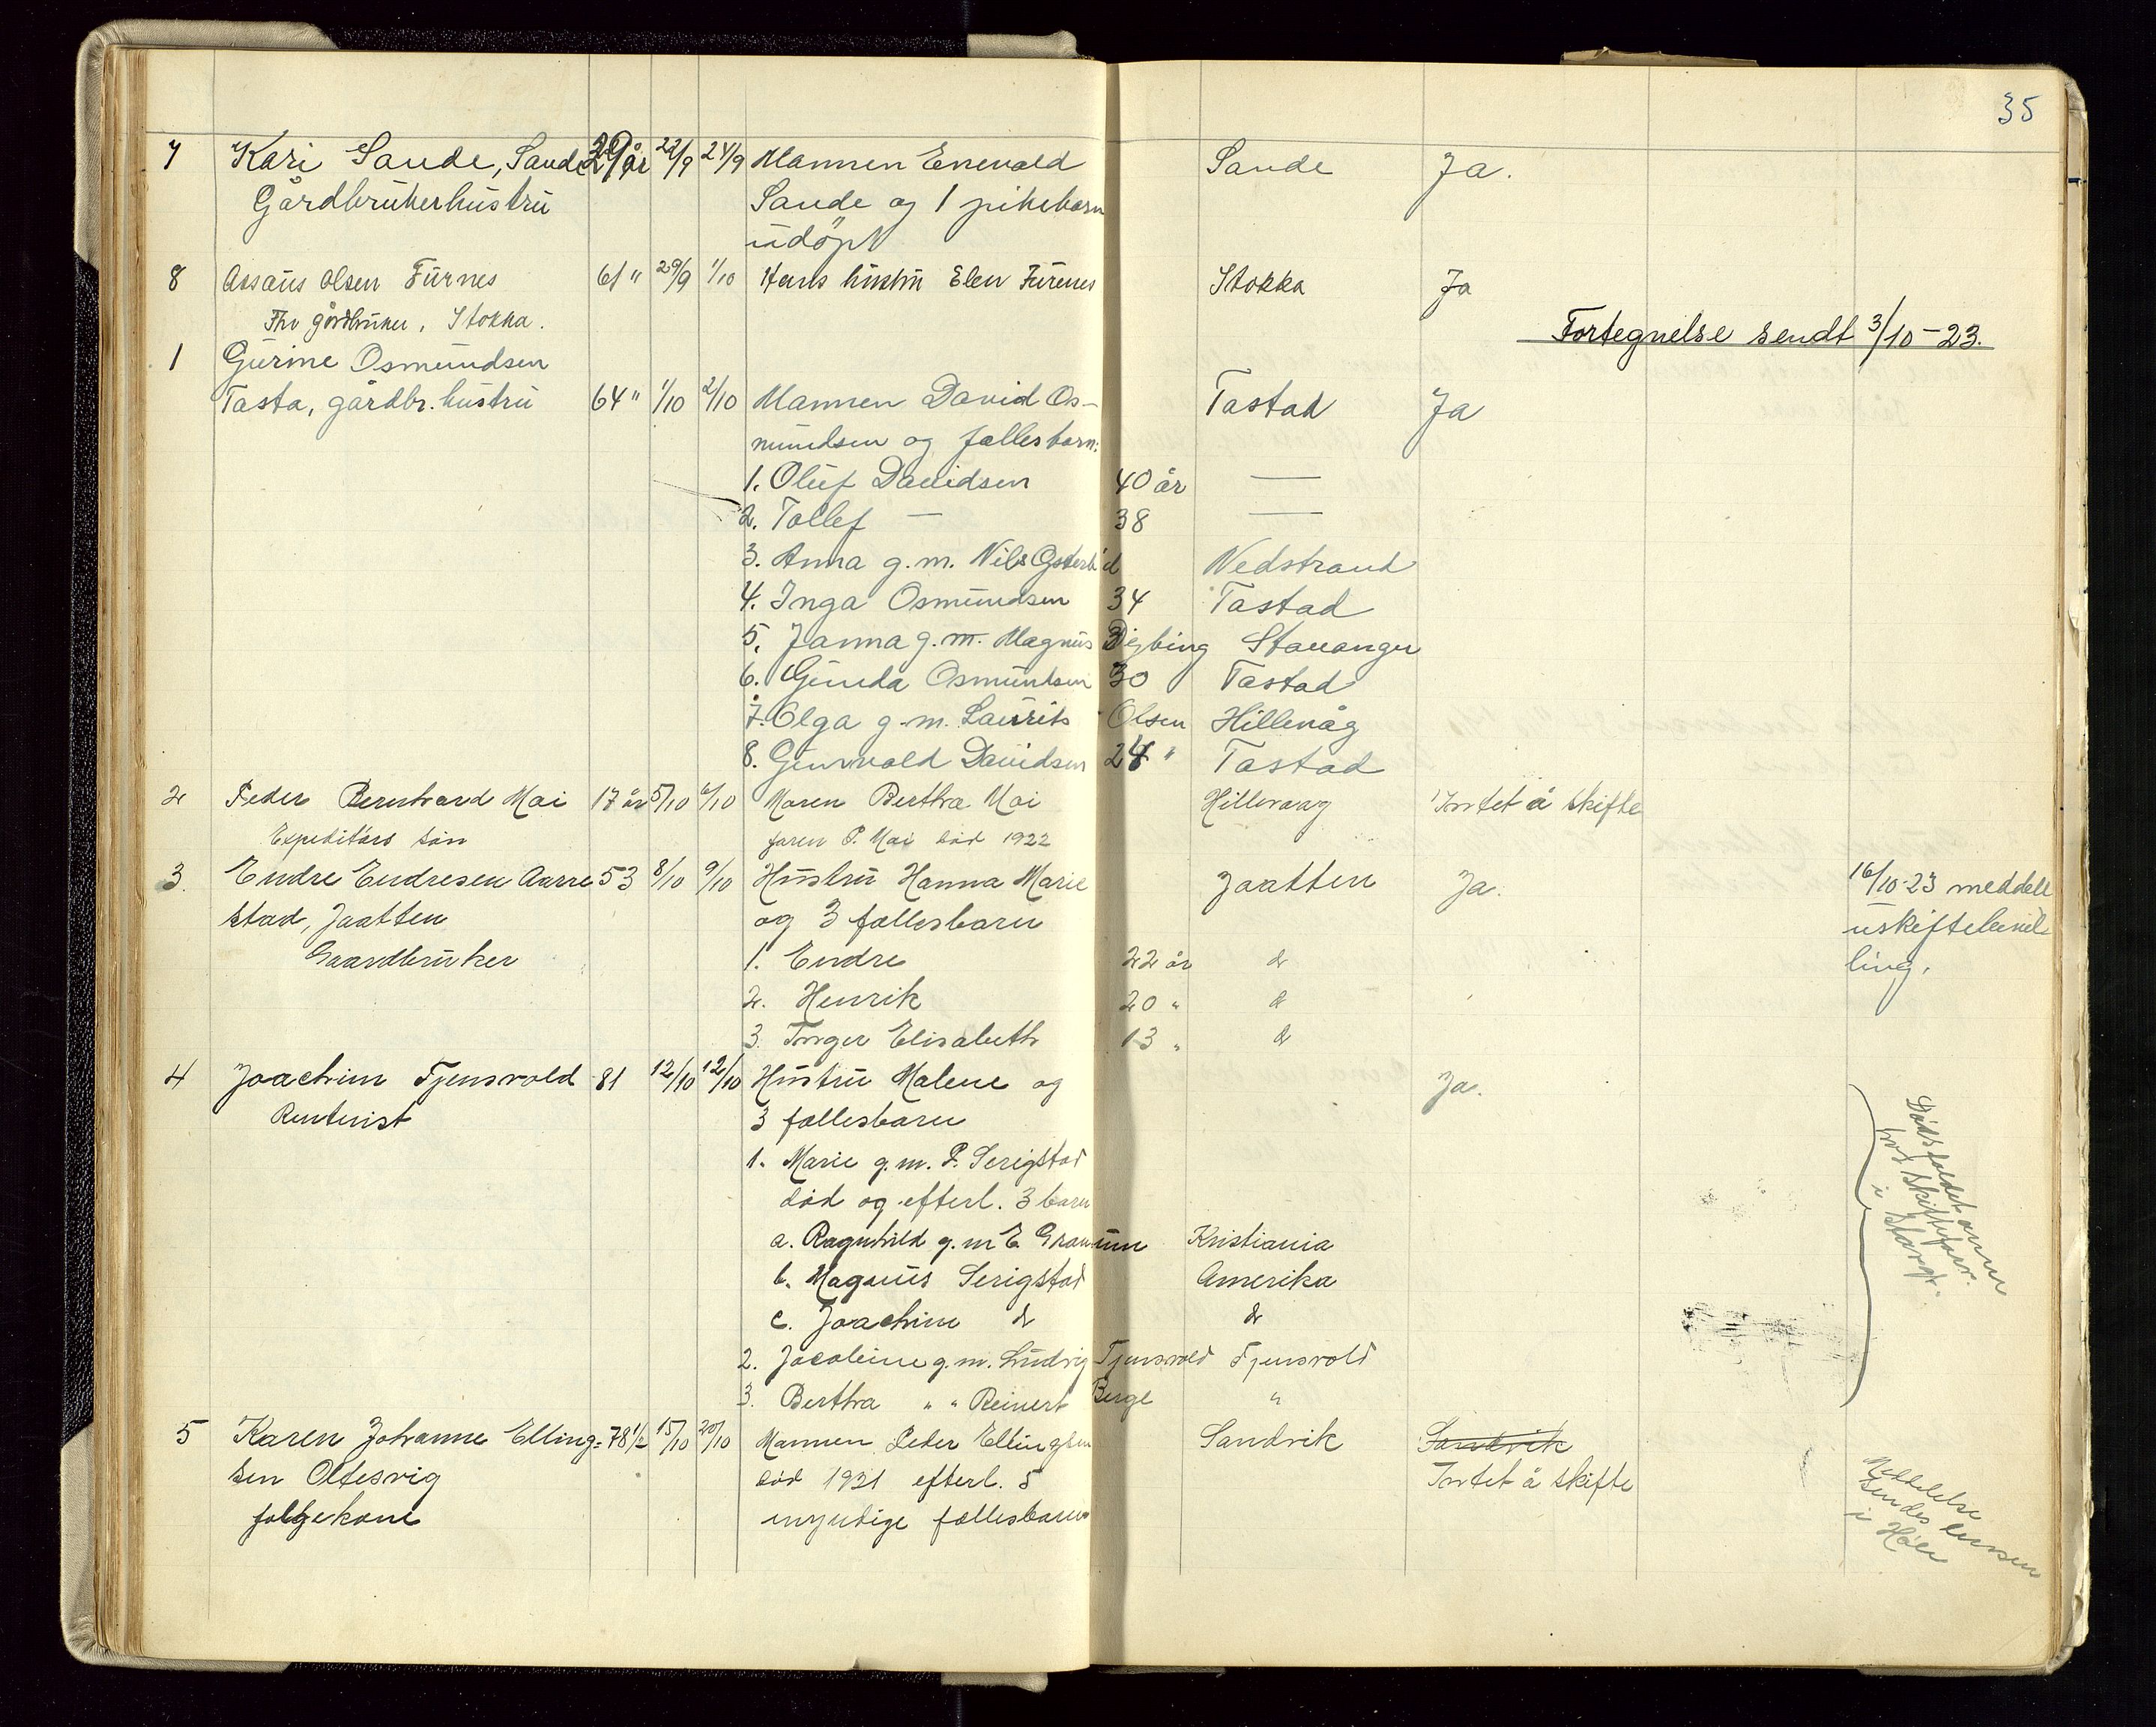 35
7 Kari Sande, Sande 29 år 22/9 24/9 Mannen Enevald Sande Ja.
Gårdbrukerhustru Sande og 1 pikebarn
udöpt
8 Assaus Olsen Furnes 61 " 29/9 1/10 Hans hustru Elen Furenes Stokka Ja
Fhv gårdbruker, Stokka.
Fortegnelse sendt 3/10-23.
1 Gurine Osmundsen
Tasta, gårdbr. hustru 64 " 1/10 2/10 Mannen David Os- Tastad Ja
mundsen og fællesbarn:
1. Oluf Davidsen 40 år —
2. Tollef — 38 —
3. Anna g. m. Nils Nedstrand
4. Inga Osmundsen 34 Tastad
5. Janna g. m. Magnus Stavanger
6. Gunda Osmundsen 30 Tastad
7. Olga g. m. Laurits Olsen Hillevåg
8. Gunvald Davidsen 24 " Tastad
2 Peder Bernhard Moi 17 år 5/10 6/10 Moren Bertha Moi Hillevaag Intet å skifte
Expeditörs sön faren P. Moi död 1922
3. Endre Endresen Aarre 53 8/10 9/10 Hustru Hanna Marie Jaatten Ja. 16/10-23 meddelt
stad, Jaatten og 3 fællesbarn uskiftebevil
Gaardbruker 1. Endre 22 år do ling.
2. Henrik 20 " do
3. Inger Elisabeth 13 " do
4 Joachim Tjensvold 81 12/10 12/10 Hustru Malene og Ja.
Rentenist 3 fællesbarn
1. Marie g. m. P. Serigstad
död og efterl. 3 barn
a. Ragnhild g. m E. Kristiania
b. Magnus Serigstad Amerika
c. Joachim do do
2. Jacobine g. m. Ludvig Tjensvold Tjensvold
3. Bertha " " Reinert Berge "
Dødsfaldet anm
hos skifteforv.
i Stavgr.
5 Karen Johanne Elling= 78 1/2 15/10 20/10 Mannen Peder Ellingsen Sandvik Sandvik
sen Oltesvig död 1921 efterl. 5 Intet å skifte
folgekone myndige fællesbarn
Meddelelse
sendes
i Höle